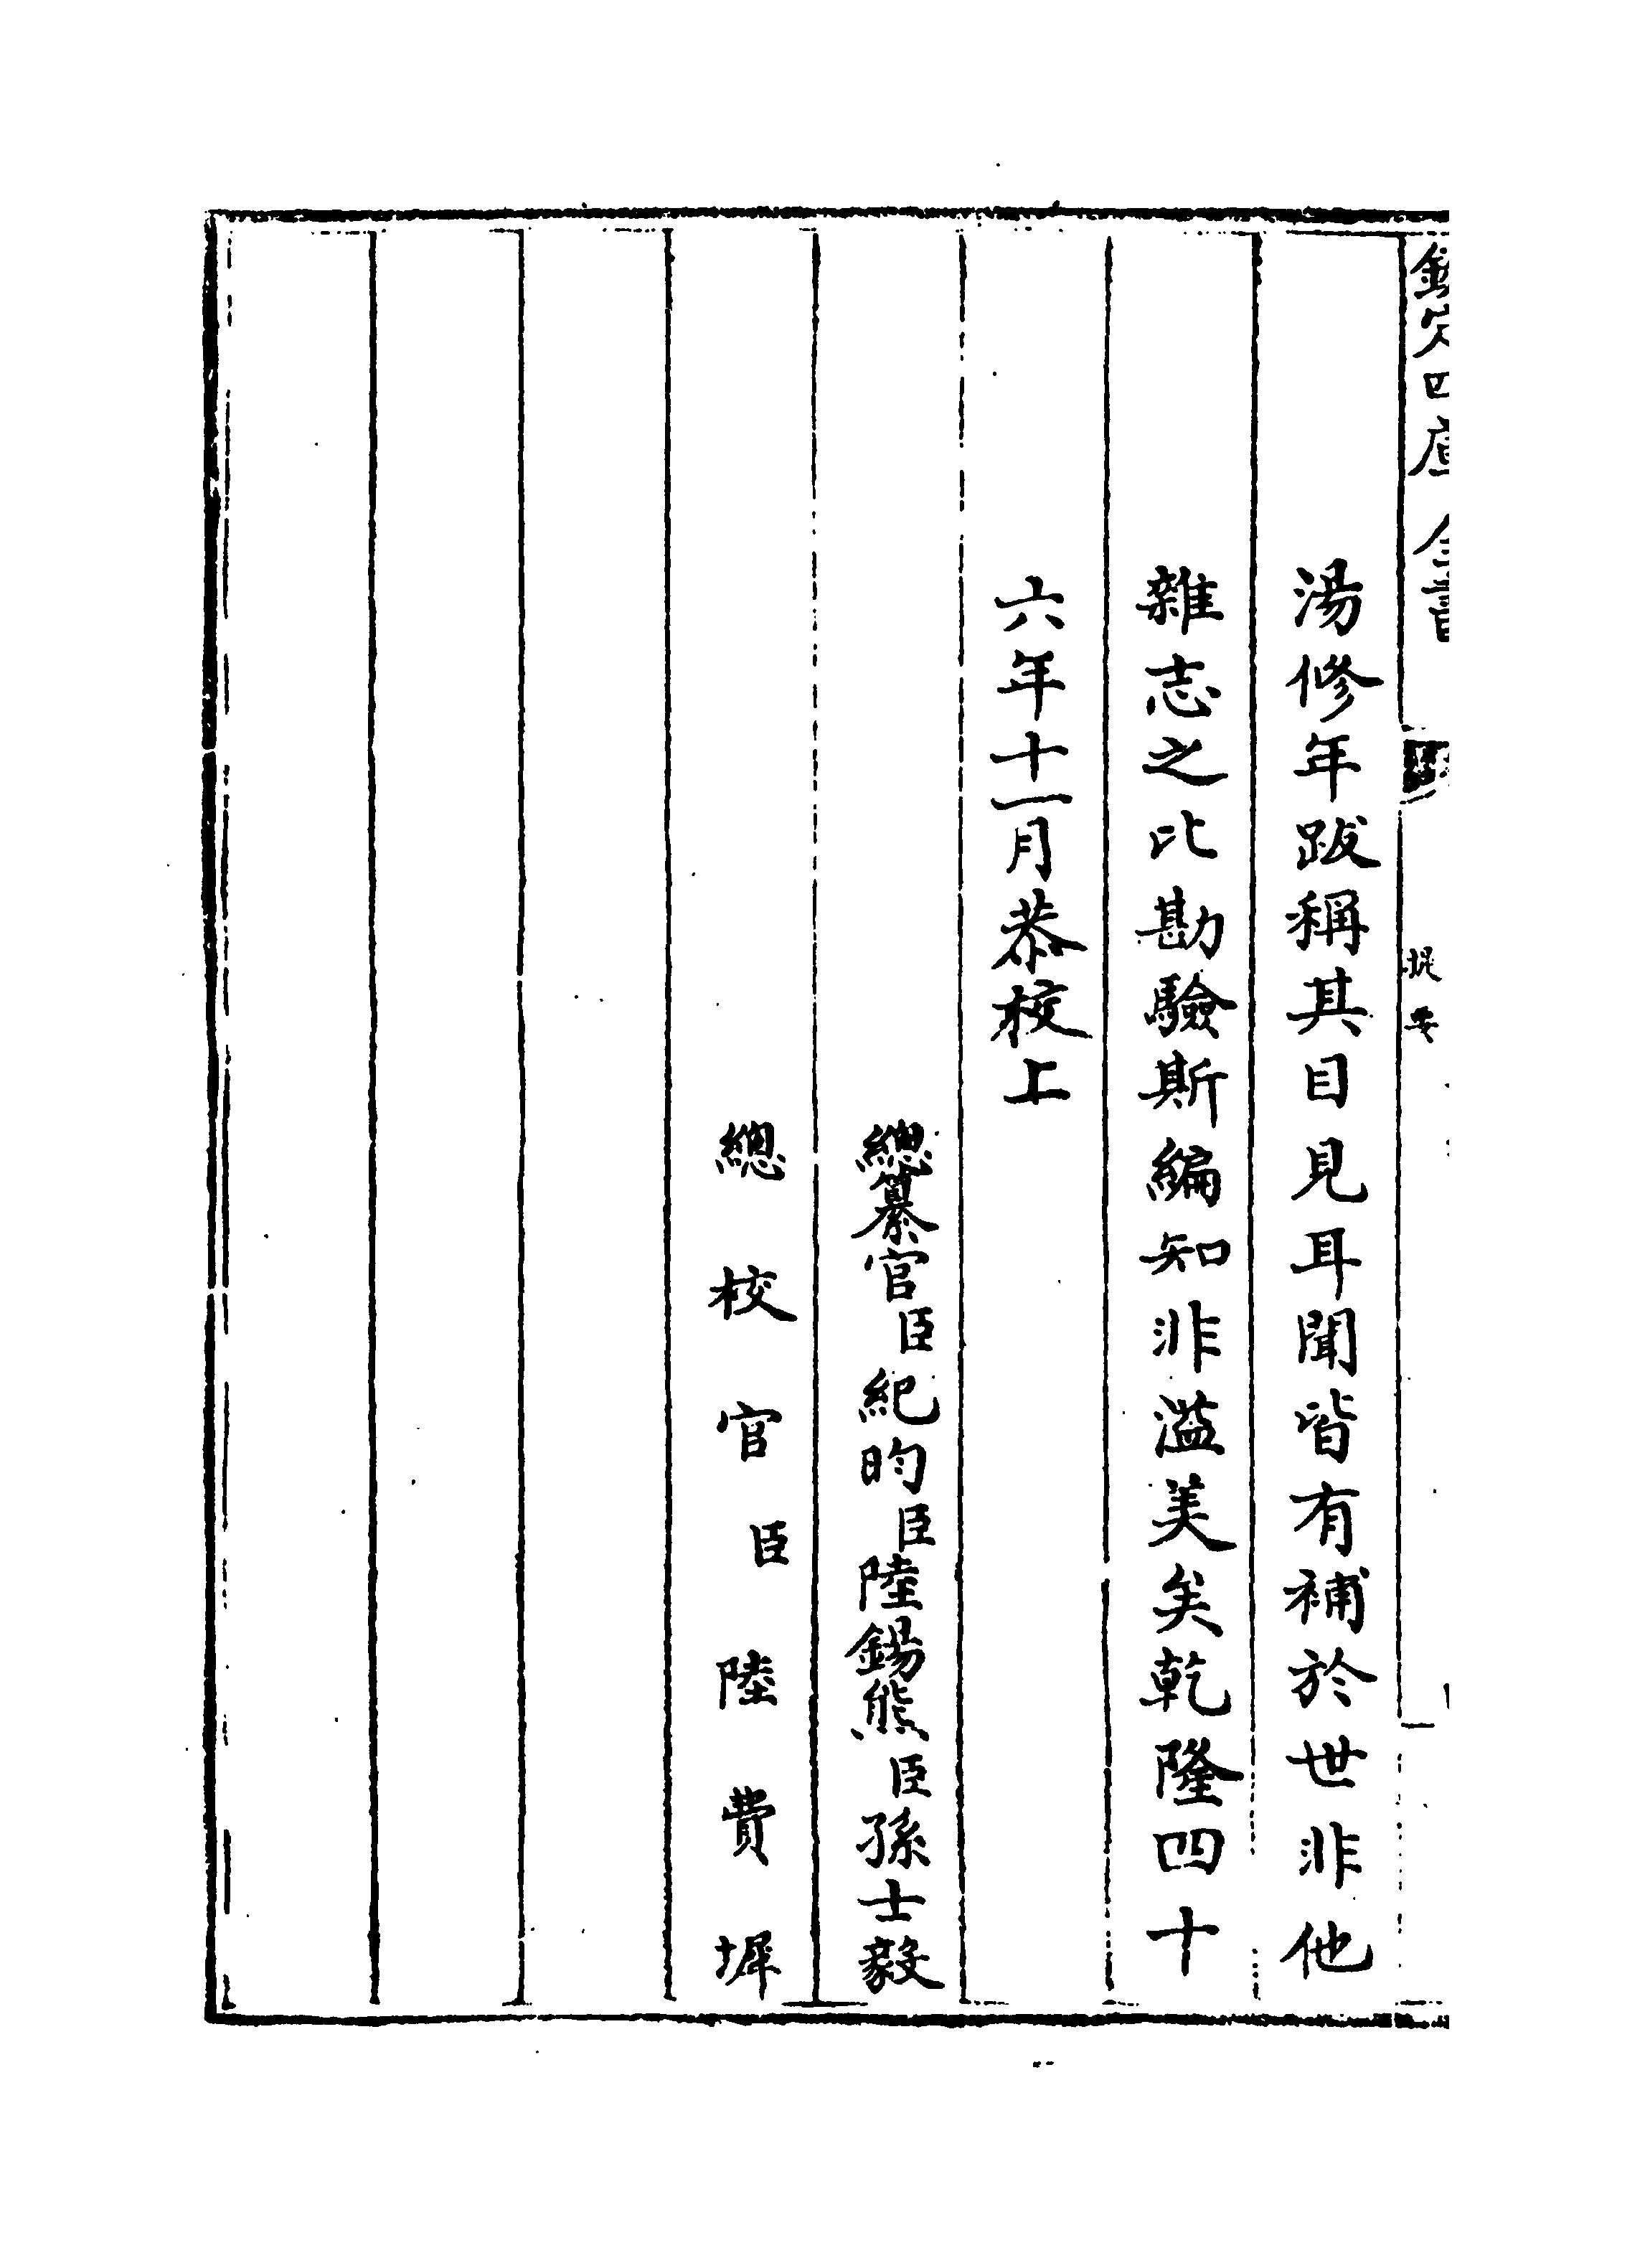 欽定四庫全書
提要
湯修年跋稱其目見耳聞皆有補於世非他
雜志之比勘驗斯編知非溢美矣乾隆四十
六年十一月恭校上
總纂官臣紀昀臣陸錫熊臣孫士毅
總校官臣陸費墀